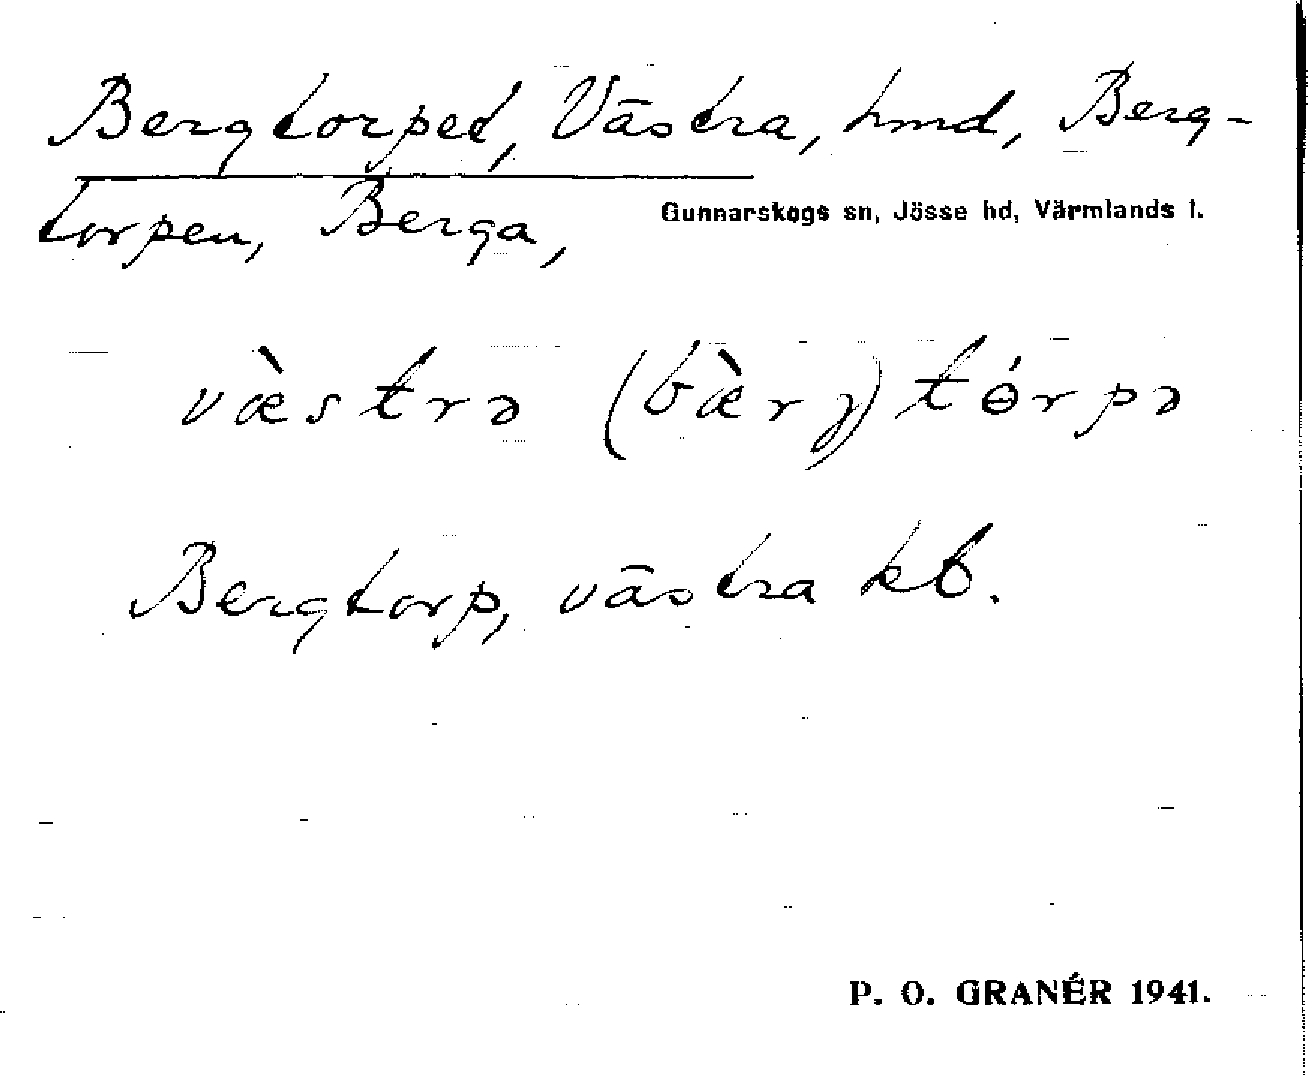 Bergtorpet, Västra, hmd, Berg-
torpen, Berga,
Gunnarskogs sn, Jösse hd, Värmlands l.
væ̀strə (bæ̀rj) tɵ́rpə
Bergtorp, västra kb.
P. O. GRANÉR 1941.